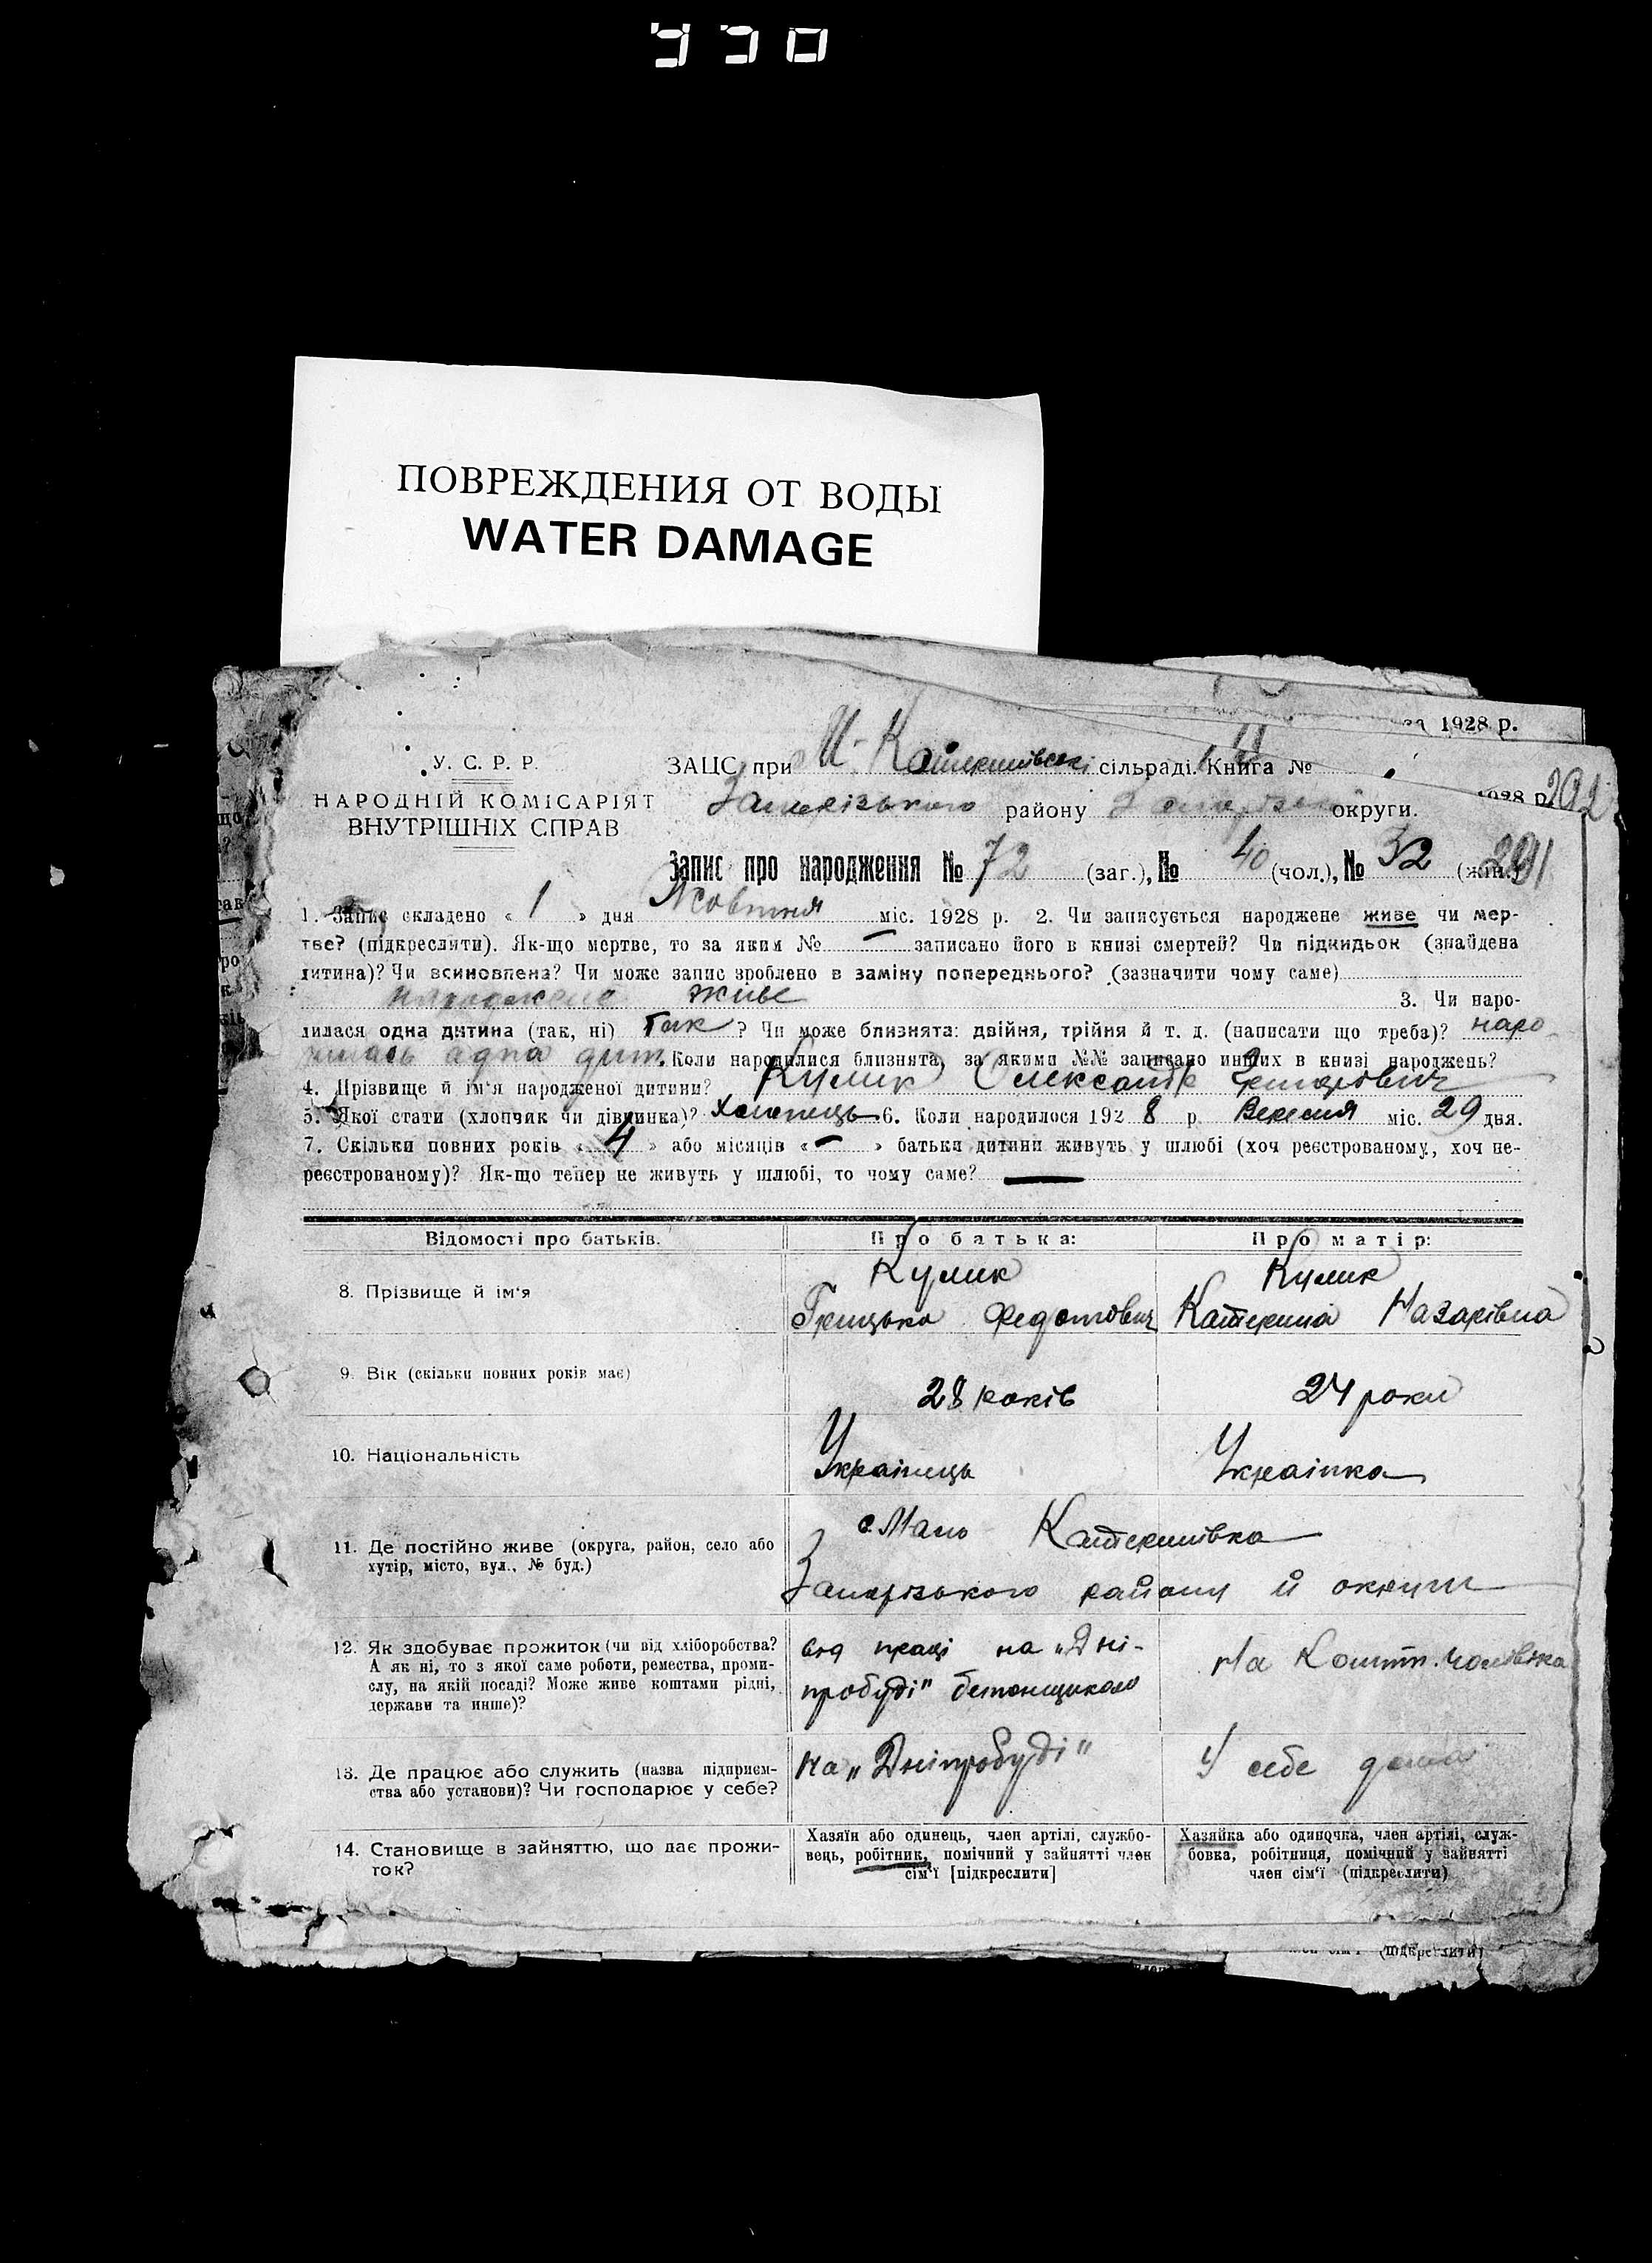 930
ПОВРЕЖДЕНИЯ ОТ ВОДЫ
WATER DAMAGE
1928 р.
У. С. Р. Р.
НАРОДНІЙ КОМІСАРІЯТ
ВНУТРІШНІХ СПРАВ
ЗАЦС при М-Катеринівські сільраді. Книга №
1928 р. 292
Запорізького району Запорізької округи.
Запис про народження № 72 (заг.), № 40 (чол.), № 32 (жін.) 291
1. Запис складено « 1 » дня Жовтня міс. 1928 р. 2. Чи записується народжене живе чи мер-
тве? (підкреслити). Як-що мертве, то за яким № — записано його в книзі смертей? Чи підкидьок (знайдена
дитина)? Чи всиновлена? Чи може запис зроблено в заміну попереднього? (зазначити чому саме)
народжене живе 3. Чи наро-
дилася одна дитина (так, ні) Так ? Чи може близнята: двійня, трійня й т. д. (написати що треба)? наро-
дилась одна дит. Коли народилися близнята, за якими №№ записано инших в книзі народжень?
4. Прізвище й ім'я народженої дитини? Кулик Олександр Григорович
5. Якої стати (хлопчик чи дівчинка)? Хлопець 6. Коли народилося 192 8 р. Вересня міс. 29 дня.
7. Скільки повних років « 4 » або місяців « — » батьки дитини живуть у шлюбі (хоч реєстрованому, хоч не-
реєстрованому)? Як-що тепер не живуть у шлюбі, то чому саме? —
Відомості про батьків. Про батька: Про матір:
8. Прізвище й ім'я Кулик Грицько Федотович Кулик Катерина Назарівна
9. Вік (скільки повних років має) 28 років 24 роки
10. Національність Українець Українка
11. Де постійно живе (округа, район, село або
хутір, місто, вул., № буд.)
с. Мало Катеринівка
Запорізького району й округи
12. Як здобуває прожиток (чи від хліборобства?
А як ні, то з якої саме роботи, ремества, проми-
слу, на якій посаді? Може живе коштами рідні,
держави та инше)?
від праці на „Дні-
пробуді" бетонщиком
На кошт. чоловіка
13. Де працює або служить (назва підприєм-
ства або установи)? Чи господарює у себе?
на „Дніпробуді"
У себе дома
14. Становище в зайняттю, що дає прожи-
ток?
Хазяїн або одинець, член артілі, службо-
вець, робітник, помічний у зайнятті член
сім'ї [підкреслити]
Хазяйка або одиночка, член артілі, служ-
бовка, робітниця, помічний у зайнятті
член сім'ї (підкреслити)
(підкреслити)